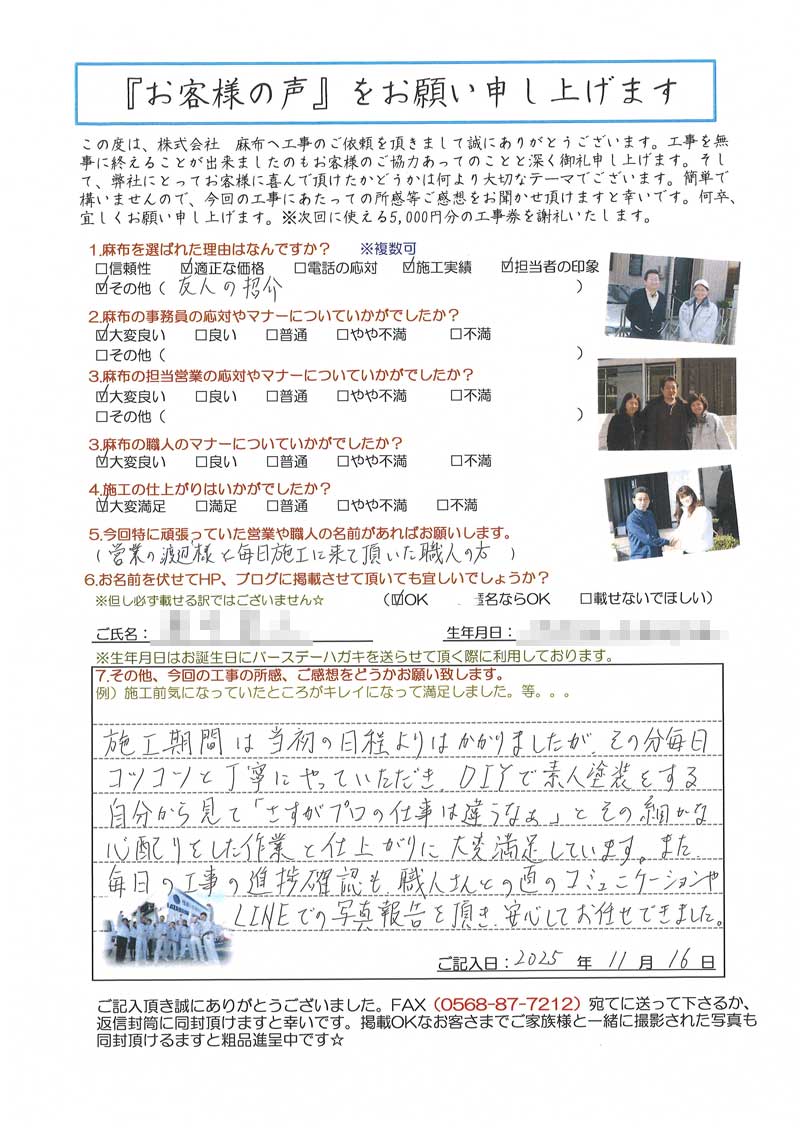 『お客様の声』をお願い申し上げます
この度は、株式会社　麻布へ工事のご依頼を頂きまして誠にありがとうございます。工事を無
事に終えることが出来ましたのもお客様のご協力あってのことと深く御礼申し上げます。そし
て、弊社にとってお客様に喜んで頂けたかどうかは何より大切なテーマでございます。簡単で
構いませんので、今回の工事にあたっての所感等ご感想をお聞かせ頂けますと幸いです。何卒、
宜しくお願い申し上げます。※次回に使える5,000円分の工事券を謝礼いたします。
1.麻布を選ばれた理由はなんですか？　※複数可
□信頼性　☑適正な価格　□電話の応対　☑施工実績　☑担当者の印象
☑その他（ 友人の紹介 ）
2.麻布の事務員の応対やマナーについていかがでしたか？
☑大変良い　□良い　□普通　□やや不満　□不満
□その他（ ）
3.麻布の担当営業の応対やマナーについていかがでしたか？
☑大変良い　□良い　□普通　□やや不満　□不満
□その他（ ）
3.麻布の職人のマナーについていかがでしたか？
☑大変良い　□良い　□普通　□やや不満　□不満
4.施工の仕上がりはいかがでしたか？
☑大変満足　□満足　□普通　□やや不満　□不満
5.今回特に頑張っていた営業や職人の名前があればお願いします。
（営業の渡辺様と毎日施工に来て頂いた職人の方）
6.お名前を伏せてHP、ブログに掲載させて頂いても宜しいでしょうか？
※但し必ず載せる訳ではございません☆　（☑OK　名ならOK　□載せないでほしい）
ご氏名：　生年月日：
※生年月日はお誕生日にバースデーハガキを送らせて頂く際に利用しております。
7.その他、今回の工事の所感、ご感想をどうかお願い致します。
例）施工前気になっていたところがキレイになって満足しました。等。。。
施工期間は当初の日程よりはかかりましたが、その分毎日
コツコツと丁寧にやっていただき、DIYで素人塗装をする
自分から見て「さすがプロの仕事は違うなぁ」とその細かな
心配りをした作業と仕上がりに大変満足しています。また、
毎日の工事の進捗確認も、職人さんとの直のコミュニケーションや
LINEでの写真報告を頂き、安心してお任せできました。
ご記入日：2025 年 11 月 16 日
ご記入頂き誠にありがとうございました。FAX（0568-87-7212）宛てに送って下さるか、
返信封筒に同封頂けますと幸いです。掲載OKなお客さまでご家族様と一緒に撮影された写真も
同封頂けるますと粗品進呈中です☆